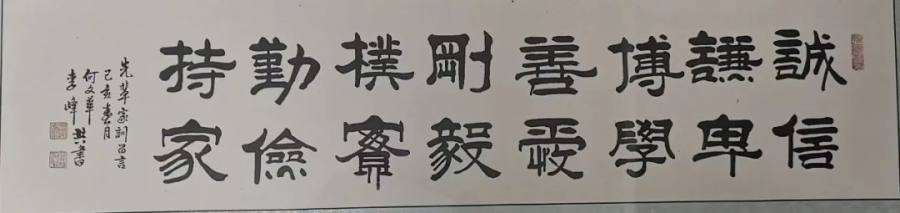 誠信
謙卑
博學
善
剛毅
樸實
勤儉
持家
先輩家訓言
己亥春月
何文華
李峰共書